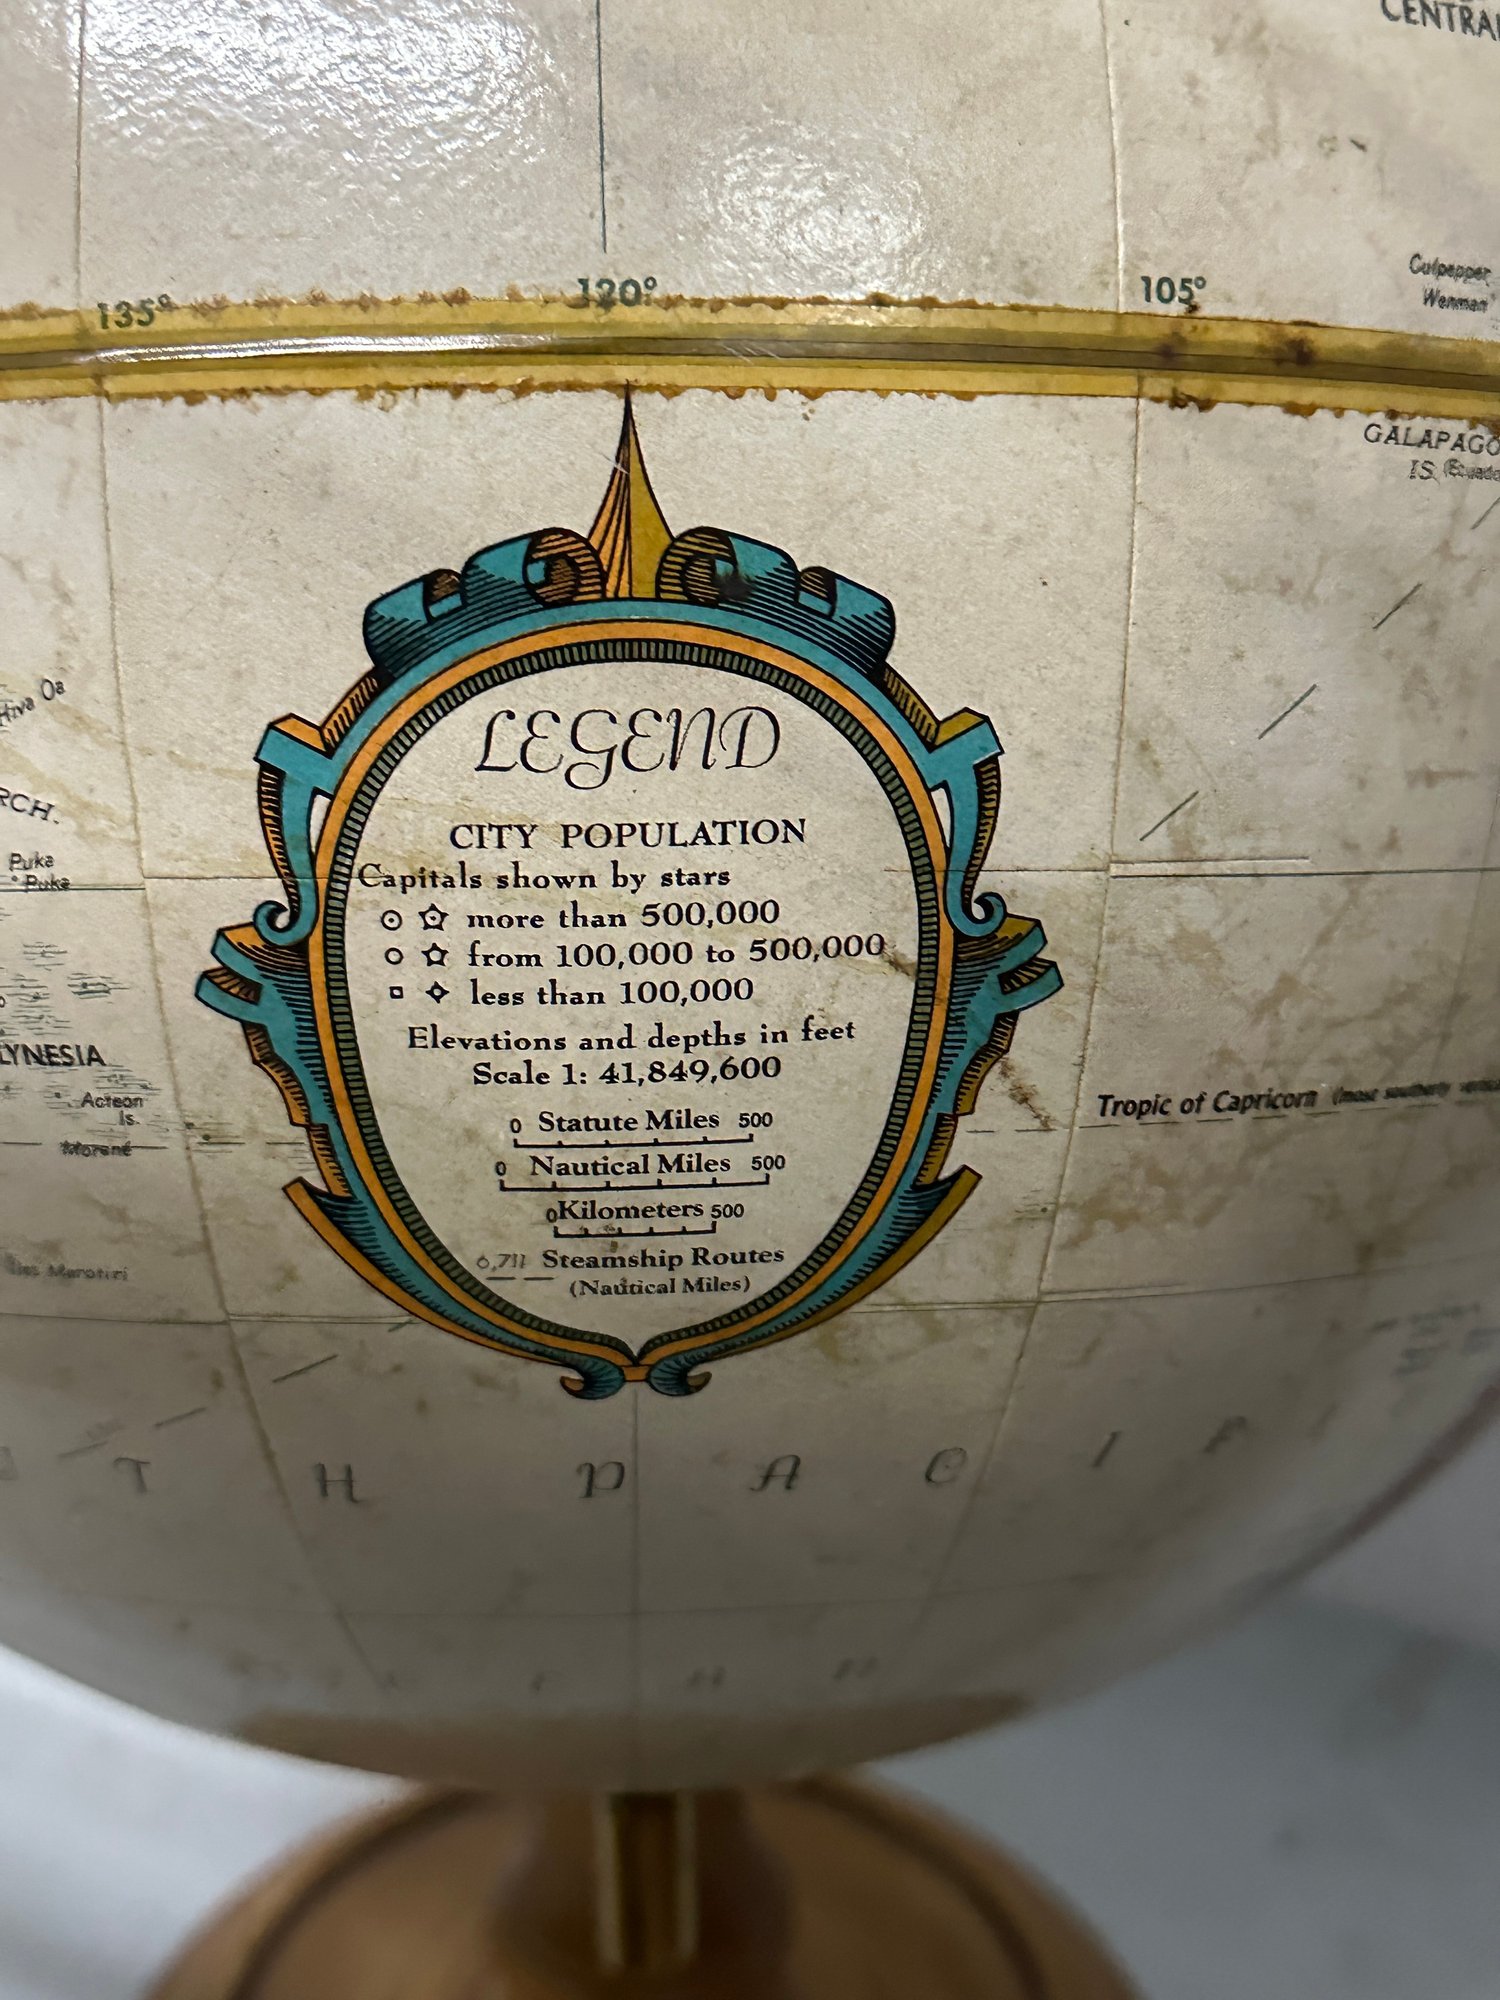 CENTRAL
Culpepper
Wenman
135° 120° 105°
GALAPAGO
IS. (Ecuado
Hiva Oa
RCH.
Puka
Puka
LYNESIA
Acteon
Is.
Morane
LEGEND
CITY POPULATION
Capitals shown by stars
more than 500,000
from 100,000 to 500,000
less than 100,000
Elevations and depths in feet
Scale 1: 41,849,600
0 Statute Miles 500
0 Nautical Miles 500
0 Kilometers 500
6,711 Steamship Routes
(Nautical Miles)
Tropic of Capricorn (most southerly
Marotiri
T H P A C I F